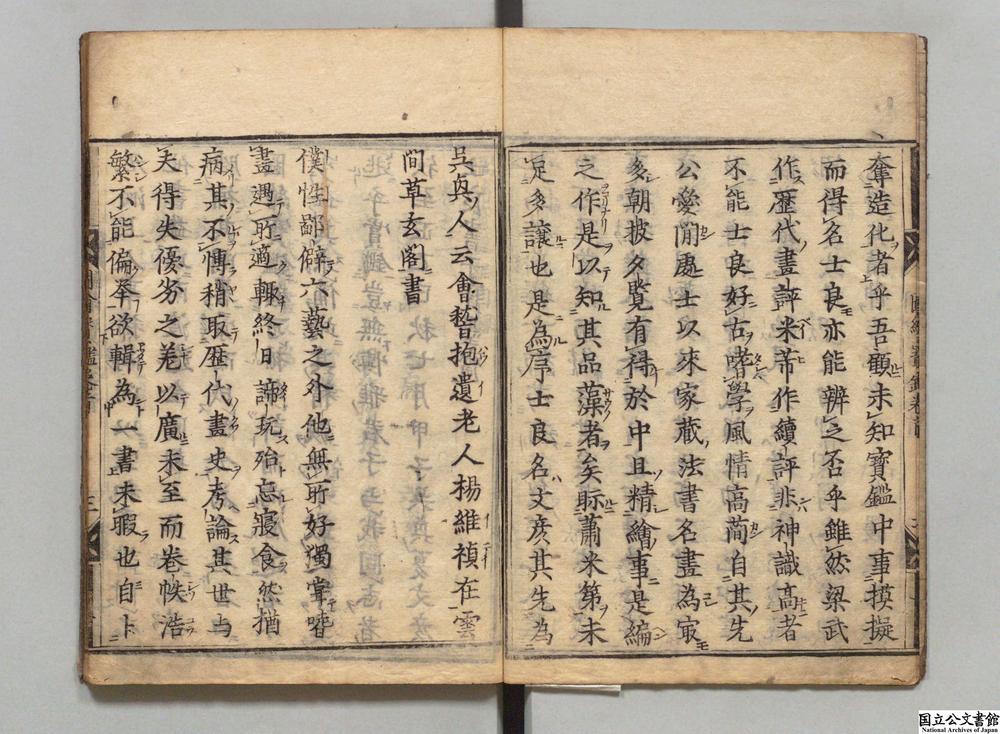 奪造化者乎吾顧未知寶鑑中事摸擬
而得名士良亦能辨之否乎雖然梁武
作歷代畫評米芾作續評非神識高者
不能士良好古嗜學風情高簡自其先
公愛閒處士以來家藏法書名畫為㝡
多朝披夕覽有得於中且精繪事是編
之作是以知其品藻者矣眎蕭米第未
足多讓也是為序士良名文彥其先為
吳興人云會稽抱遺老人楊維禎在雲
間草玄閣書
僕性鄙僻六藝之外他無所好獨嘗嗜
畫遇所適輙終日諦玩殆忘寢食然猶
病其不博稍取歷代畫史考論其世与
夫得失優劣之差以廣未至而卷帙浩
繁不能偏举欲輯為一書未暇也自卜
三
国立公文書館
National Archives of Japan